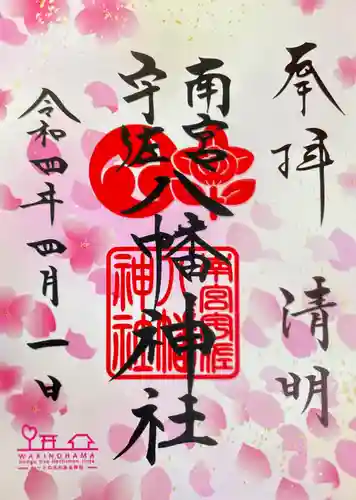 奉拝
清明
南宮
宇佐
八幡神社
令和四年四月一日
南宮宇佐
八幡
神社
WAKINOHAMA